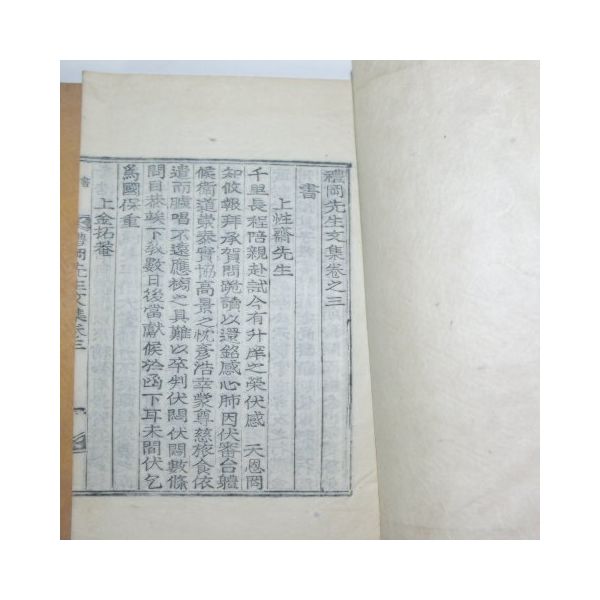 禮岡先生文集卷之三
書
上性齋先生
千里長程陪親赴試今有升庠之榮伏感 天恩罔
知攸報拜承賀問跪讀以還銘感心肺因伏審台體
候衛道崇泰實協高景之忱彦浩幸蒙尊慈旅食依
遣而臚唱不遠應榜之具難以卒判伏悶伏悶數條
問目恭竢下敎數日後當獻候於函下耳未間伏乞
爲國保重
上金拓菴
書
禮岡先生文集卷三
一